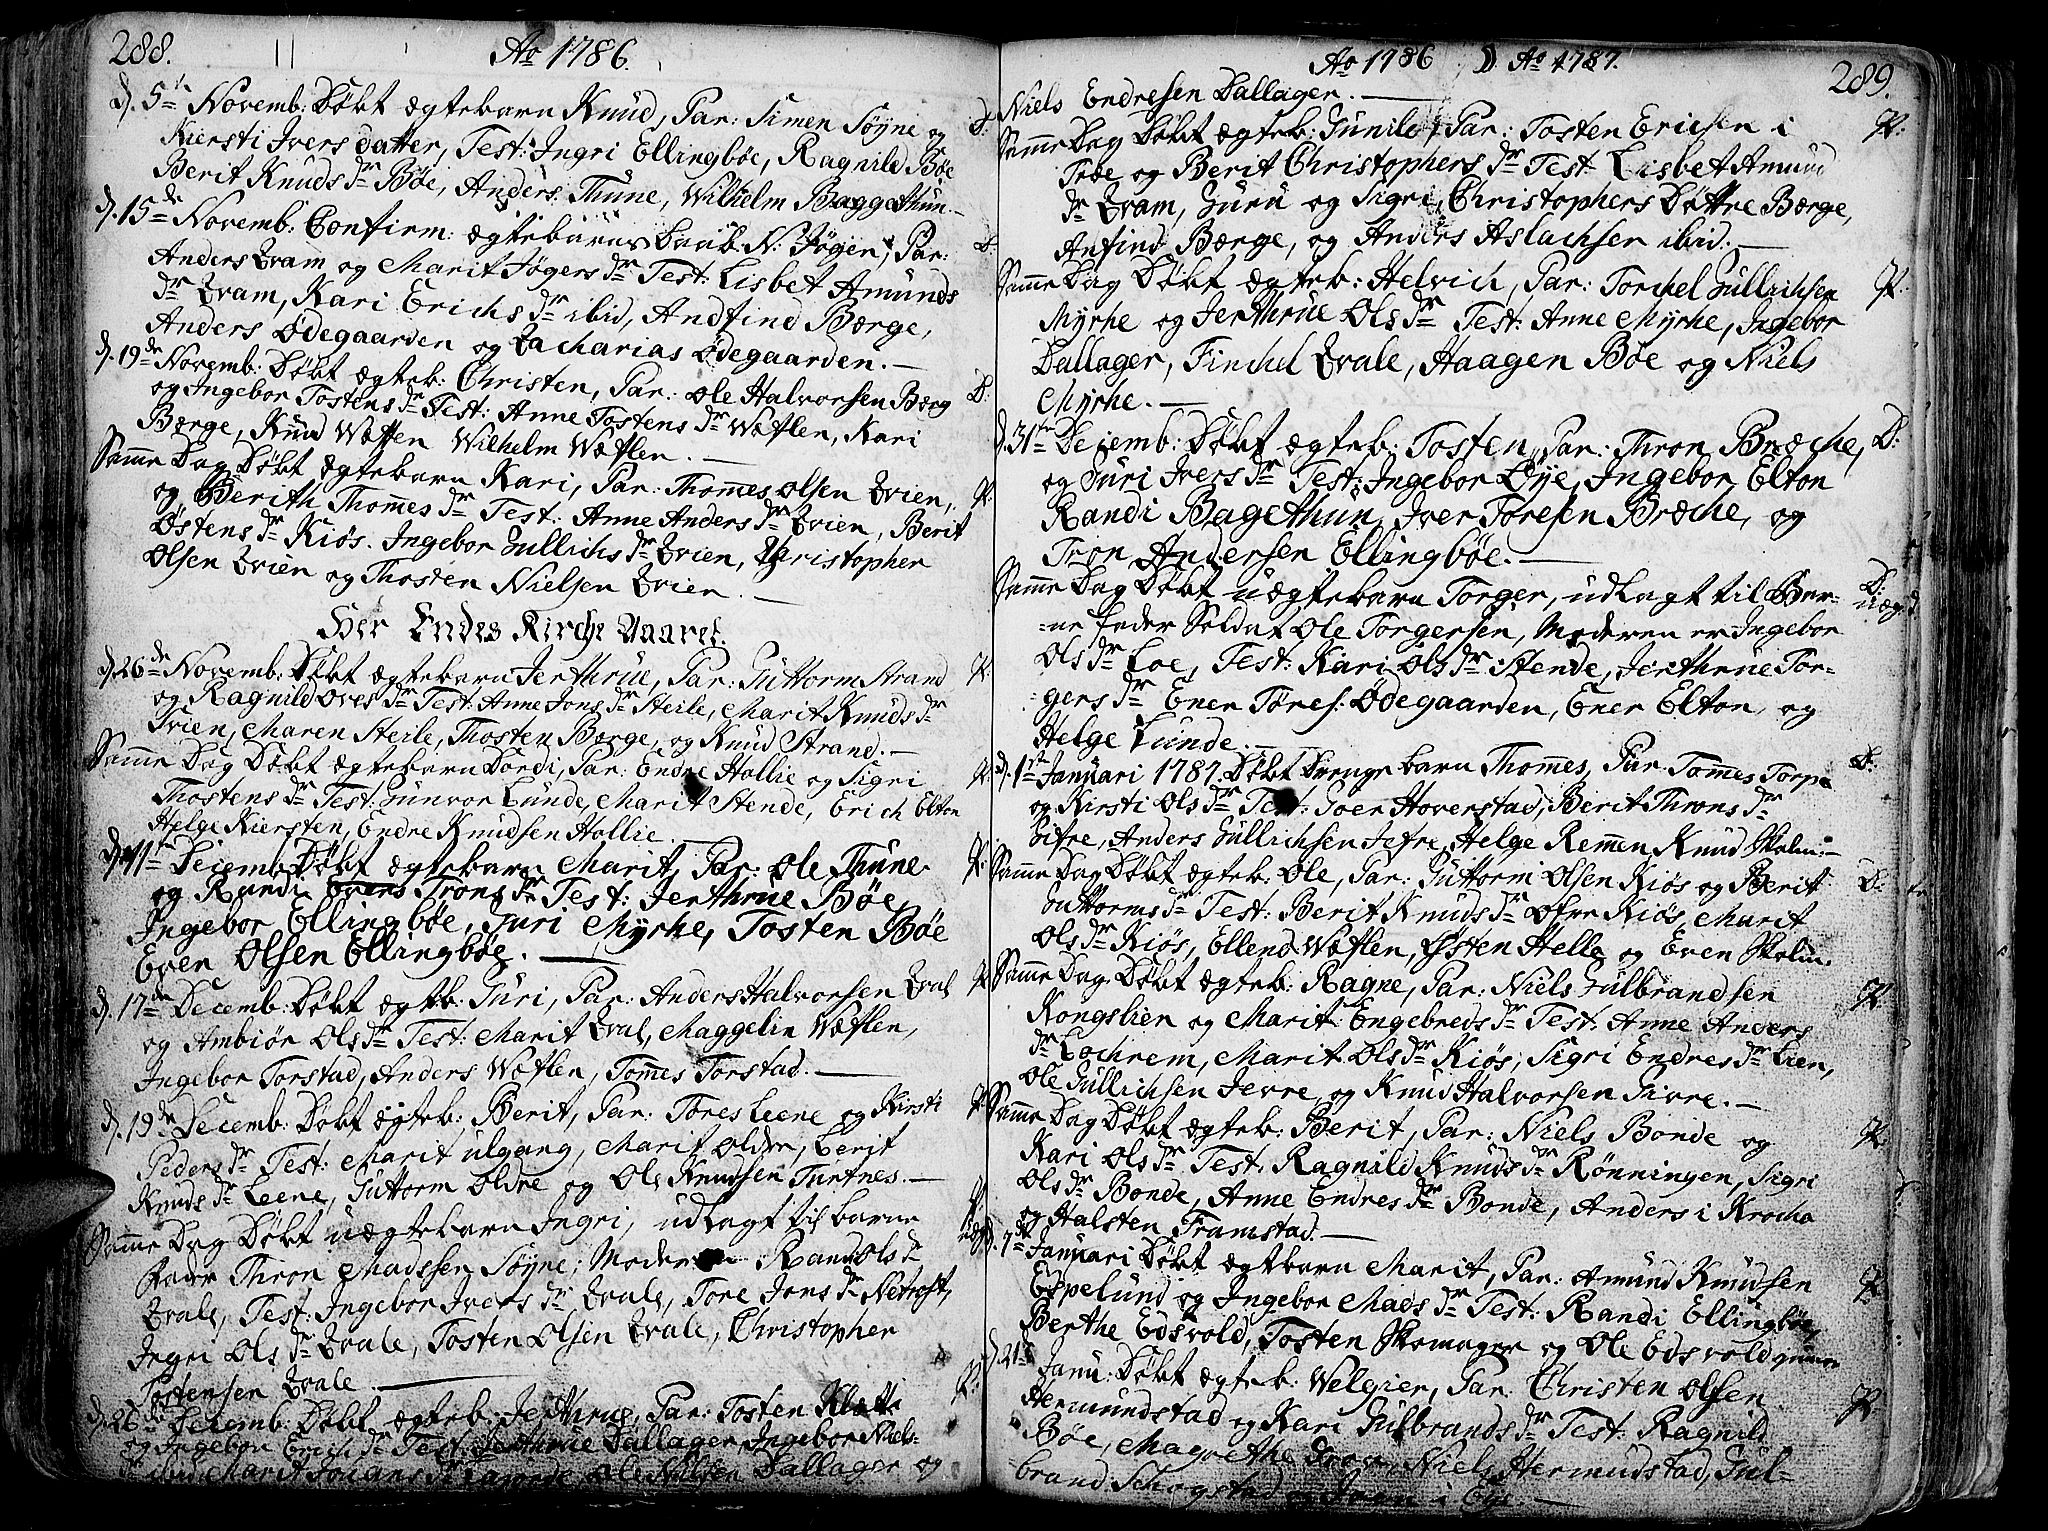 288.
Ao 1786.
d. 5te Novemb: Døbt ægtebarn Knud, Par: Simen Søyne og
Kiersti Ivers datter, Test: Ingri Ellingbøe, Ragnild Bøe
Berit Knuds dr Bøe, Anders Thune, Wilhelm Baggethun.
d. 15de Novemb: Confirm: ægtebarns Daab. N: Jøger, Par:
Anders Qvam og Marit Jøgers dr Test: Lisbet Amunds
dr Qvam, Kari Erichs dr ibid, Andfind Børge,
Anders Ødegaarden og Zacharias Ødegaarden.
d. 19de Novemb: Døbt ægteb: Christen, Par: Ole Halvorsen Børg
og Ingebor Tostens dr Test: Anne Tostens dr Wøflen, Kari
Børge, Knud Wøflen Wilhelm Wøflen.
Samme Dag Døbt ægtebarn Kari, Par: Thommes Olsen Qvien,
og Berith Thommes dr Test: Anne Anders dr Qvien, Berit
Østens dr Kiøs. Ingebor Gullichs dr Qvien, Christopher
Olsen Qvien og Thosten Nielsen Qvien.
Her Endes Kirche Aaret.
d. 26de Novemb: Døbt ægtebarn Jerthrue, Par: Guttorm Strand
og Ragnild Oves dr Test: Anne Jons dr Steile, Marit Knuds dr
Qvien, Maren Steile, Thosten Børge, og Knud Strand.
Samme Dag Døbt ægtebarn Dordi, Par: Endre Hollie og Sigri
Thostens dr Test: Gunvor Lunde, Marit Stende, Erich Elton
Helge Kiersten, Endre Knudsen Hollie.
d. 11te Decemb: Døbt ægtebarn Marit, Par: Ole Thune
og Randi Trons dr Test: Jerthrue Bøe,
Ingebor Ellingbøe, Guri Myrhe, Tosten Bøe
Even Olsen Ellingbøe.
d. 17de Decemb: Døbt ægtb: Guri, Par: Anders Halvorsen Qval
og Ambiør Ols dr Test: Marit Qval, Maggelin Wøflen,
Ingebor Torstad, Anders Wøflen, Tommes Torstad.
d. 19de Decemb: Døbt ægteb: Berit, Par: Tores Leene og Kirsti
Peders dr Test: Marit Ulgang, Marit Oldre, Berit
Knuds dr Leene, Guttorm Oldre og Ole Knudsen Turtnes.
Samme Dag Døbt uægtebarn Ingri, udlagt til barne
Fader Thron Madssen Søyne; Moderen Rand Ols dr
Qvale, Test: Ingebor Ivers dr Qvale, Tore Jons dr
Ingri Ols dr Qvale, Tosten Olsen Qvale, Christopher
Tostensen Qvale.
d. 26de Decemb: Døbt ægteb: Jerthrue, Par: Tosten Klætte
og Ingebor Erich dr Test: Jerthrue Dallager, Ingebor Niels-
dr ibid, Marit Johans dr Ole Nielsen Dallager og
Ao 1786 D Ao 1787.
289.
Niels Endresen Dallager.
Samme Dag Døbt ægteb: Gunild, Par: Tosten Ericsen i
Troe og Berit Christophers dr Test: Lisbet Amund
dr Qvam, Guru og Sigri Christophers Døttre Børge,
Anfind Børge, og Anders Aslachsen ibid.
Samme Dag Døbt ægteb: Helvich, Par: Torchel Gullichsen
Myrhe og Jerthrue Ols dr Test: Anne Myrhe, Ingebor
Dallager, Finchel Qvale, Haagen Bøe og Niels
Myrhe.
d. 31te Decemb: Døbt ægteb: Tosten, Par: Thron Bræche,
og Guri Ivers dr Test: Ingebor Øye, Ingebor Elton
Randi Bagethun, Iver Toresen Bræche, og
Tron Andersen Ellingbøe.
Samme Dag Døbt uægtebarn Torger, udlagt til Bar-
ne fader Soldat Ole Torgersen, Moderen er Ingebor
Ols dr Loe, Test: Kari Ols dr Stende, Jerthrue Tor-
gers dr Ener Tøres: Ødegaarden, Ener Elton, og
Helge Lunde.
d. 1ste Januari 1787. Døbt Drenge barn Thommes, Par: Tommes Torpe
og Kirsti Ols dr Test: Goer Hoverstad, Berit Throns dr
Gifre, Anders Gullichsen Jefre, Helge Remmen, Knud Skolm.
Samme Dag Døbt ægteb: Ole, Par: Guttorm Olsen Kiøs og Berit
Guttorms dr Test: Berit Knuds dr Øfre Kiøs, Marit
Ols dr Kiøs, Ellend Wøflen, Østen Helle og Even Skolm.
Samme Dag Døbt ægteb: Ragne, Par: Niels Gulbrandsen
Kongslien og Marit Engebreds dr Test: Anne Anders
dr Lochrem, Marit Ols dr Kiøs, Sigri Endres dr Lien,
Ole Gullichsen Jevre, og Knud Halvorsen Givre.
Samme Dag Døbt ægteb: Berit, Par: Niels Bonde og
Kari Ols dr Test. Ragnild Knuds dr Rønningen, Sigri
Ols dr Bonde, Anne Endres dr Bonde, Anders i Krocha
og Halsten Framstad.
d. 7de Januari Døbt ægtbarn Marit, Par: Amund Knudsen
Espelund og Ingebor Mads dr Test: Randi Ellingbøe,
Berthe Edsvold, Tosten Skomager og Ole Edsvold
d. 21de Janu: Døbt ægteb: Welgier, Par: Christen Olsen
Hermundstad og Kari Gulbrands dr Test: Ragnild
Bøe, Magrethe Niels Hermundstad, Gul-
brand Schogstad og i